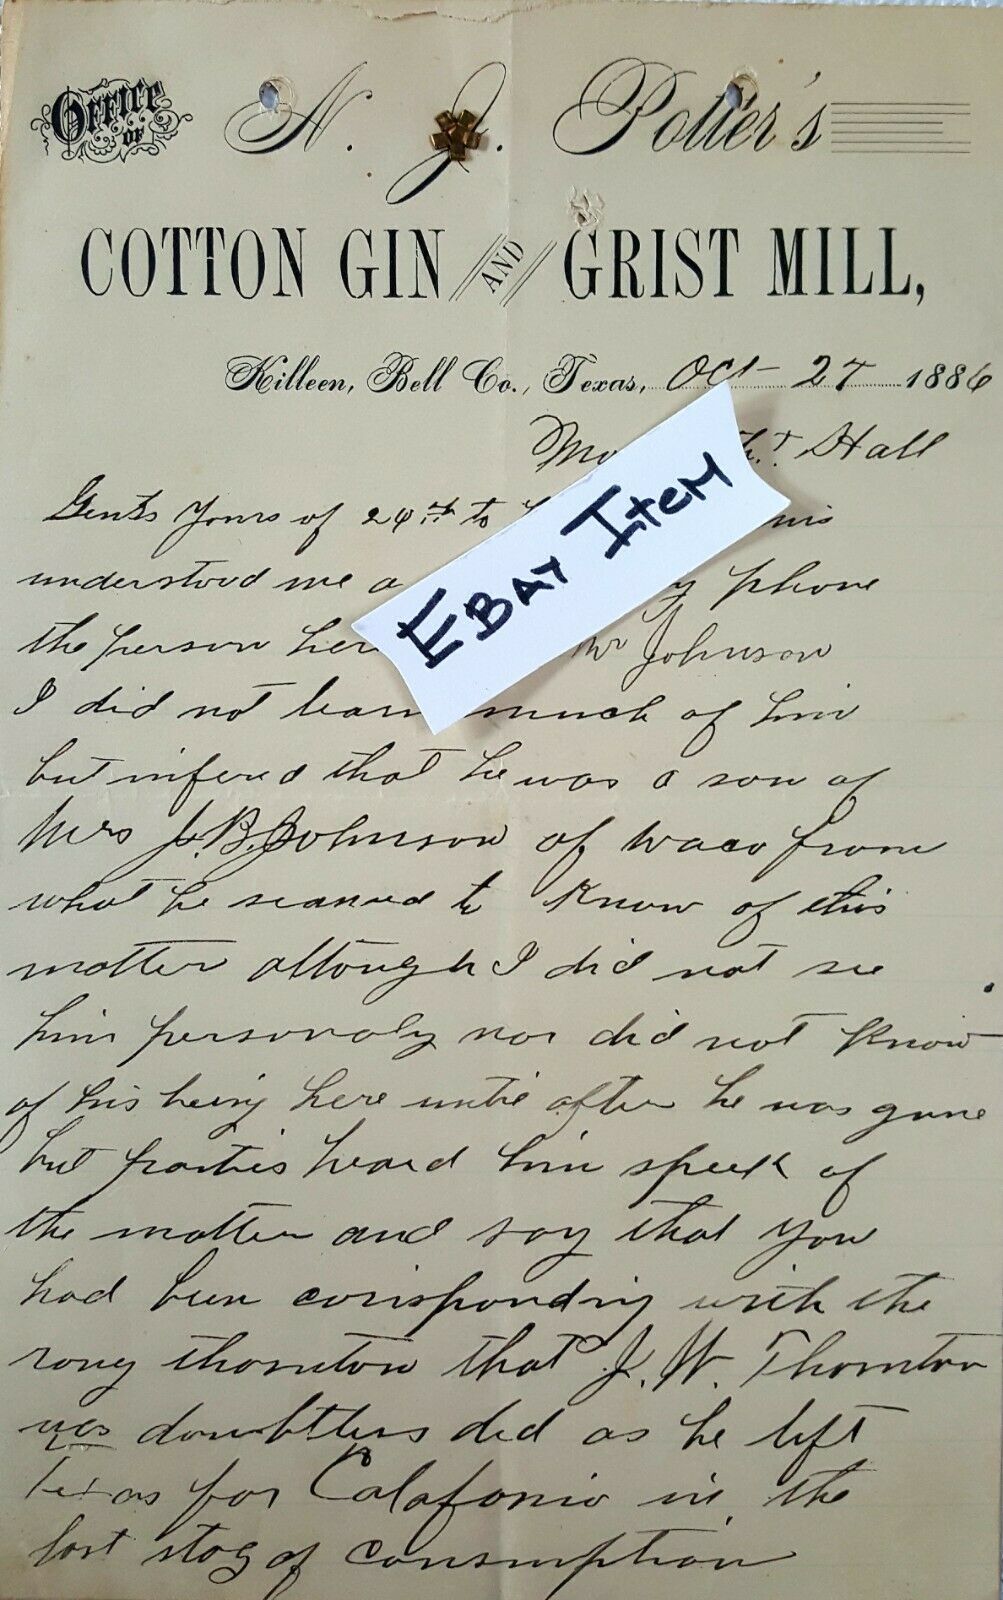 Office of N. J. Potter's
COTTON GIN AND GRIST MILL,
Killeen, Bell Co., Texas, Oct 27 1886
Hall
Gents Yours of 24th to
understood me a phone
the person her Mr Johnson
I did not learn much of him
but infered that he was a son of
Mrs J. B. Johnson of Waco from
what he seamed to know of this
matter altough I did not see
him personaly nor did not know
of his being here untie after he was gone
but parties heard him speek of
the matter and say that you
had been corisponding with the
rong thornton that J. W. Thornton
was doubtless ded as he left
Texas for Calafonia in the
last stag of consumption
EBAY ITEM